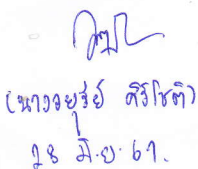 (นางอยุรีย์ ศิริโชติ)
28 มิ.ย. 67.